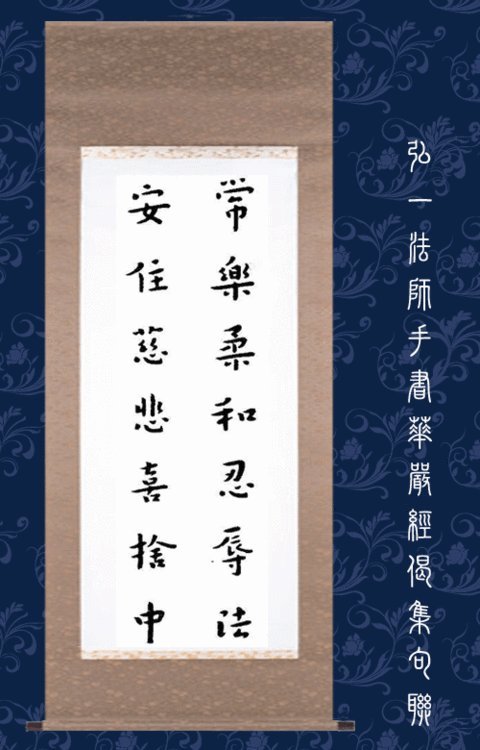 弘一法師手書華嚴經偈集句聯
常樂柔和忍辱法
安住慈悲喜捨中